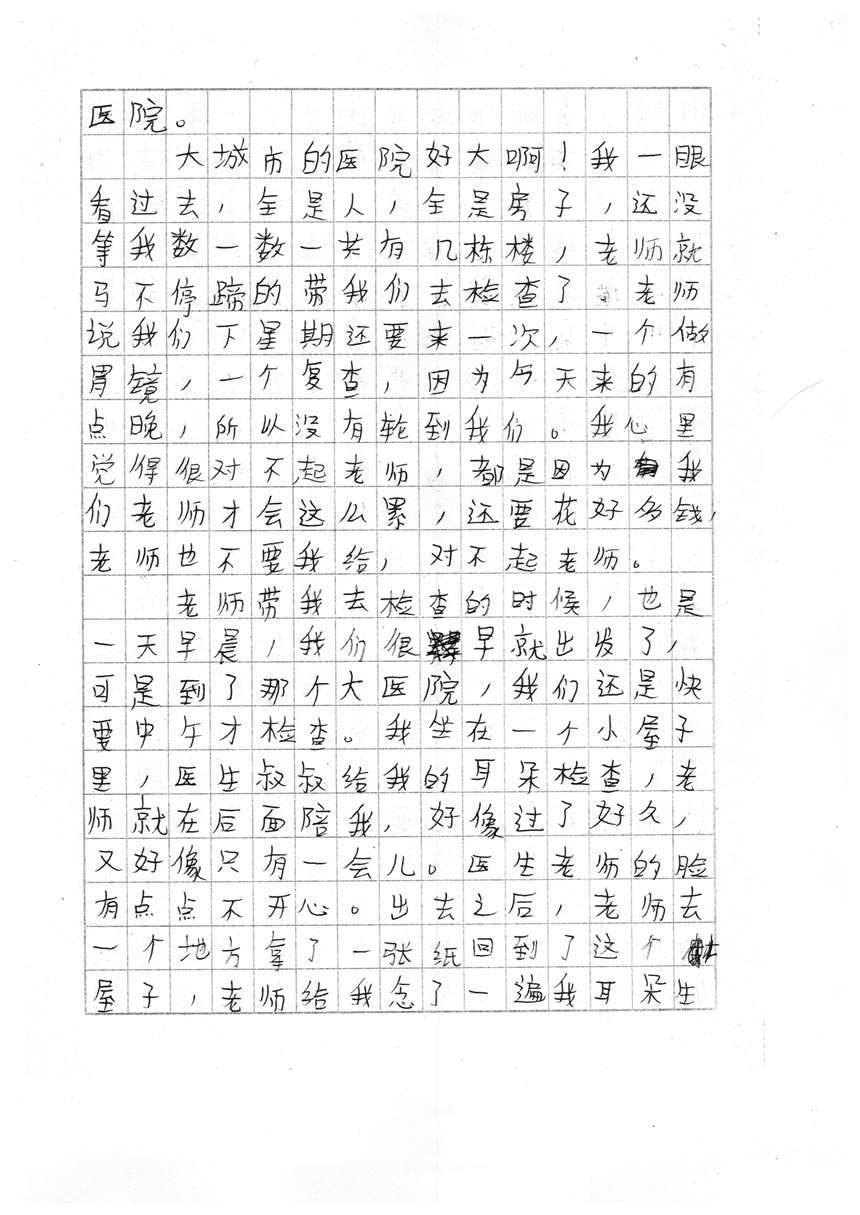 医院。
大城市的医院好大啊！我一眼
看过去，全是人，全是房子，还没
等我数一数一共有几栋楼，老师就
马不停蹄的带我们去检查了 老师
说我们下星期还要来一次，一个做
胃镜，一个复查，因为今天来的有
点晚，所以没有轮到我们。我心里
觉得很对不起老师，都是因为我
们老师才会这么累，还要花好多钱，
老师也不要我给，对不起老师。
老师带我去检查的时候，也是
一天早晨，我们很早就出发了，
可是到了那个大医院，我们还是快
要中午才检查。我坐在一个小屋子
里，医生叔叔给我的耳朵检查，老
师就在后面陪我，好像过了好久，
又好像只有一会儿。医生老师的脸
有点点不开心。出去之后，老师去
一个地方拿了一张纸回到了这个
屋子，老师给我念了一遍我耳朵生